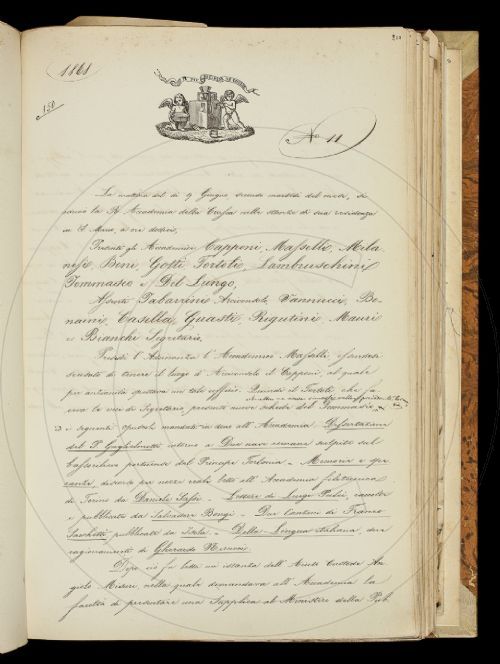 1868
150
No 11
La mattina del dì 9 Giugno, secondo martedì del mese, si
adunò la R. Accademia della Crusca nelle stanze di sua residenza
in S. Marco, a ore dodici,
Presenti gli Accademici Capponi, Masselli, Mila-
nesi, Boni, Gotti, Tortoli, Lambruschini,
Tommaseo e Del Lungo,
Assenti Tabarrini Arciconsolo, Vannucci, Bo-
naini, Casella, Guasti, Rigutini, Mauri
e Bianchi Segretario.
Presedé l'Adunanza l'Accademico Masselli, essendosi
scusato di tenere il luogo d'Arciconsolo il Capponi, al quale
per anzianità spettava un tale ufficio. Quindi il Tortoli che fa-
ceva le veci di Segretario presentò nuove schede del Tommaséo
e i seguenti opuscoli mandati in dono all'Accademia: Dissertazione
del P. Guglielmotti intorno a Due navi romane scolpite sul
bassorilievo portuense del Principe Torlonia - Memorie e
discorso per nozze letto all'Accademia filotecnica
di Torino da Daniele Sassi - Lettere di Luigi Pulci, raccolte
e pubblicate da Salvadore Bongi - Due Canzoni di Franco
Sacchetti pubblicate da - Della Lingua italiana, due
ragionamenti di Gherardo Nerucci.
Dopo ciò fu letta un'istanza dell'Custode An-
giolo nella quale domandava all'Accademia la
facoltà di presentare una Supplica al Ministero della Pub.